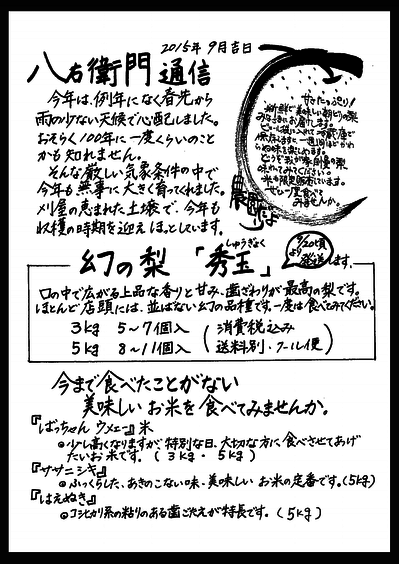 2015年9月吉日
八右衛門通信
今年は、例年になく春先から
雨の少ない天候で心配しました。
おそらく100年に一度くらいのこと
かも知れません。
そんな厳しい気象条件の中で
今年も無事に大きく育ってくれました。
刈屋の恵まれた土壌で、今年も
収穫の時期を迎えほっとしています。
甘さたっぷり!
新鮮で美味しい朝どりの梨
みなさまにお届けします。
農園だより
幻の梨 「秀玉」
しゅうぎょく
9/20頃
より
発送します。
口の中で広がる上品な香りと甘み、歯ざわりが最高の梨です。
ほとんど店頭には、並ばない幻の品種です。一度は食べてみてください。
3kg 5〜7個入 (消費税込み
5kg 8〜11個入 送料別・クール便)
今まで食べたことがない
美味しいお米を食べてみませんか。
『ばっちゃんウメェー』米
◎少し高くなりますが、特別な日、大切な方に食べさせてあげ
たいお米です。(3kg・5kg)
『ササニシキ』
◎ふっくらした、あきのこない味・美味しいお米の定番です。(5kg)
『はえぬき』
◎コシヒカリ系の粘りのある歯ごたえが特長です。(5kg)